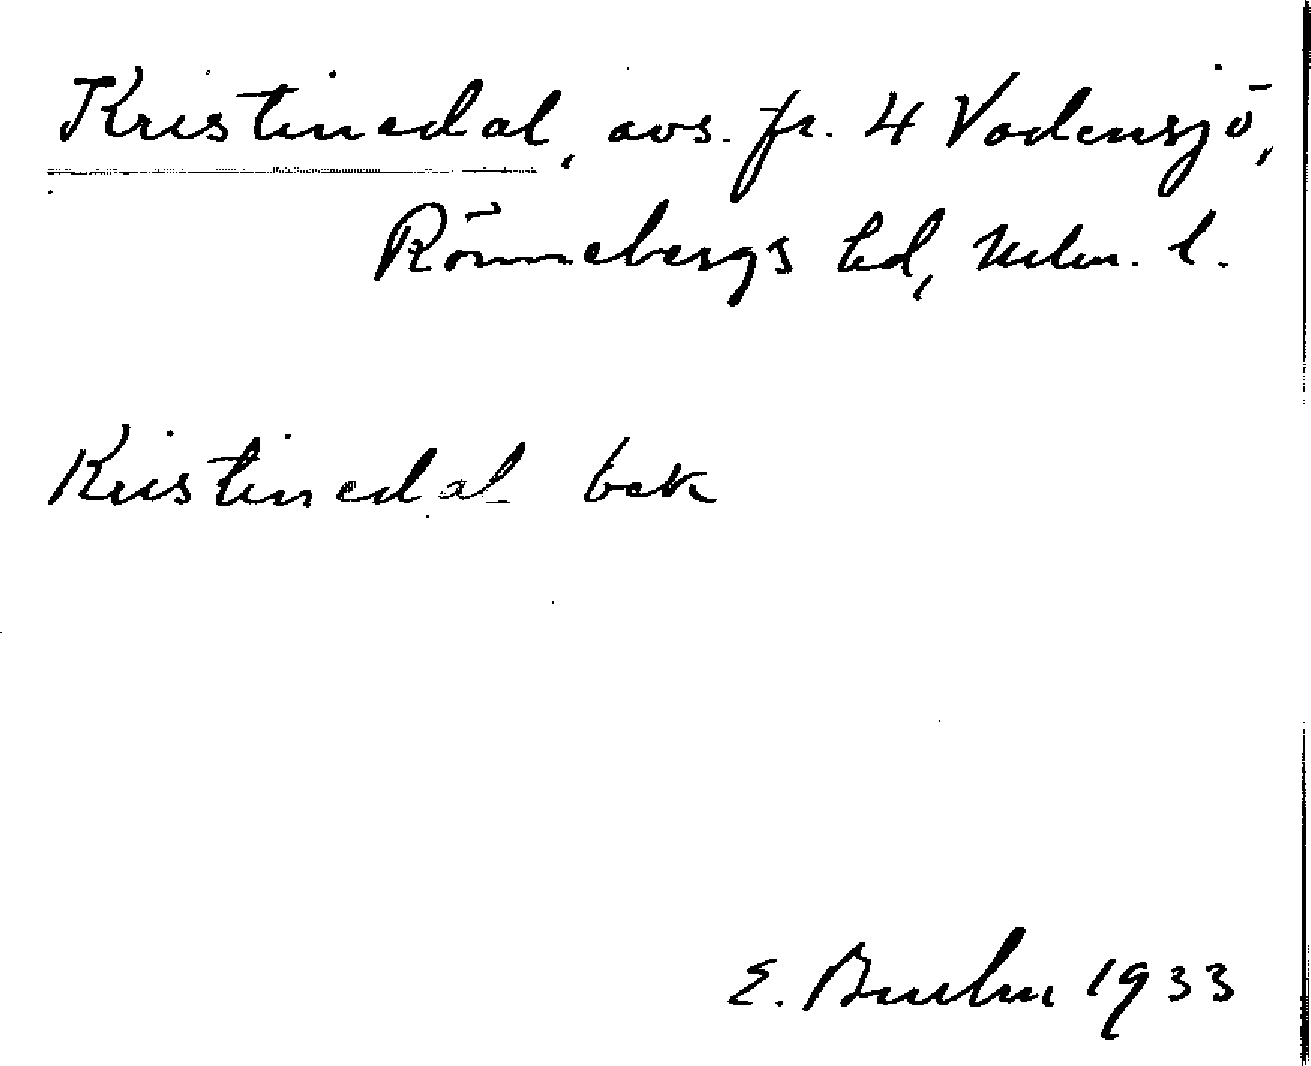 Kristinedal, avs. fr. 4 Vadensjö,
Rönnebergs hd, Mlm. l.
Kristinedal bek
E. Bruhn 1933